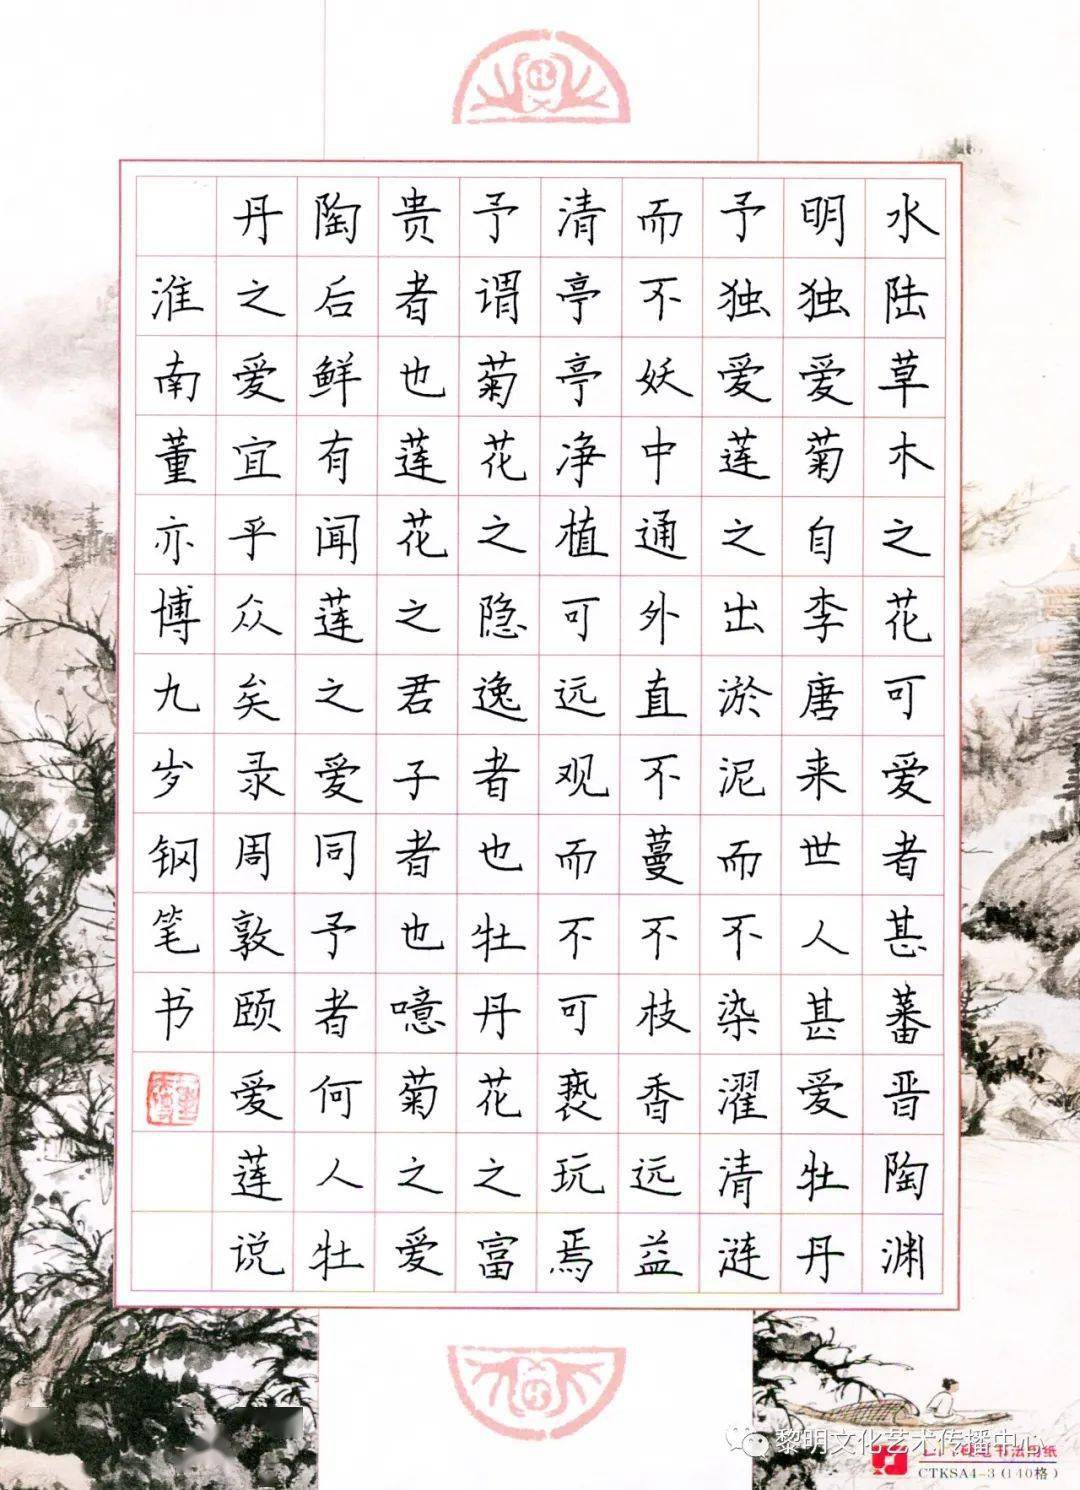 水陆草木之花可爱者甚蕃晋陶渊
明独爱菊自李唐来世人甚爱牡丹
予独爱莲之出淤泥而不染濯清涟
而不妖中通外直不蔓不枝香远益
清亭亭净植可远观而不可亵玩焉
予谓菊花之隐逸者也牡丹花之富
贵者也莲花之君子者也噫菊之爱
陶后鲜有闻莲之爱同予者何人牡
丹之爱宜乎众矣录周敦颐爱莲说
淮南董亦博九岁钢笔书
黎明文化艺术传播中心
书法用纸
CTKSA4-3(140格)